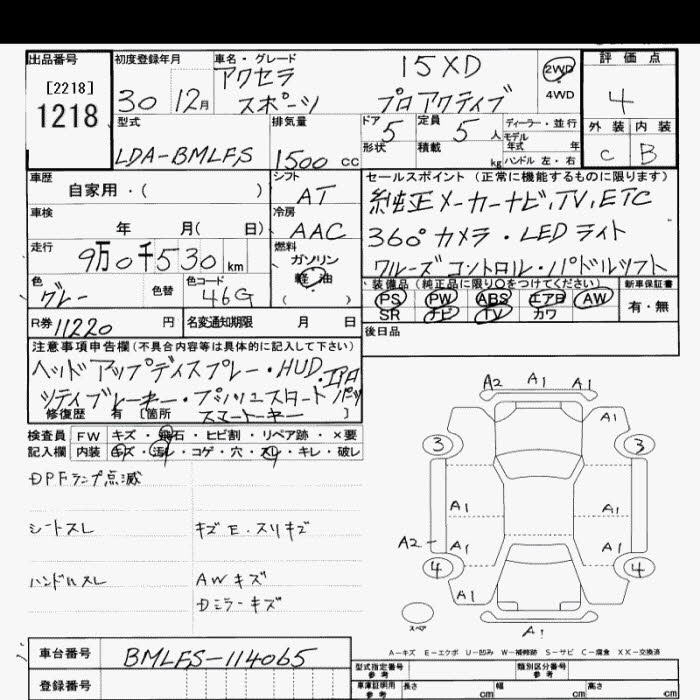 出品番号
[2218]
1218
初度登録年月
30 12月
車名・グレード
アクセラ
スポーツ
15XD
プロアクティブ
2WD
4WD
評価点
4
外装 内装
C B
型式
LDA-BMLFS
排気量
1500 cc
ドア 5
形状
定員 5 人
積載 kg
ディーラー・並行
モデル
年式 年
ハンドル 左・右
車歴
自家用・( )
車検
年 月( 日)
走行
9万0千530 km
色
グレー
色替
色コード
46G
シフト
AT
冷房
AAC
燃料
ガソリン
軽油
( )
セールスポイント (正常に機能するものに限ります)
純正メーカーナビ,TV,ETC
360°カメラ・LEDライト
クルーズコントロール・パドルシフト
装備品(純正品に限り○をつけてください)
PS PW ABS エアB AW
SR ナビ TV カワ
新車保証書
有・無
R券 11220 円
名変通知期限 月 日
後日品
注意事項申告欄(不具合内容等は具体的に記入して下さい)
ヘッドアップディスプレー・HUD・
シティブレーキ・プッシュスタート
スマートキー
修復歴 有 [箇所 ]
検査員 FW キズ・飛石・ヒビ割・リペア跡・×要
記入欄 内装 キズ・汚レ・コゲ・穴・スレ・キレ・破レ
DPFランプ点滅
シートスレ
キズE・スリキズ
ハンドルスレ
AWキズ
Dミラーキズ
A2 A1 A1
3 A1 3
A1 A1
A2 A1 A1
4 4
A1
A1
スペア
A-キズ E-エクボ U-凹み W-補修跡 S-サビ C-腐食 XX-交換済
車台番号
BMLFS-114065
登録番号
型式指定番号
参考
類別区分番号
参考
車庫証明用
参考
長さ cm 幅 cm 高さ cm